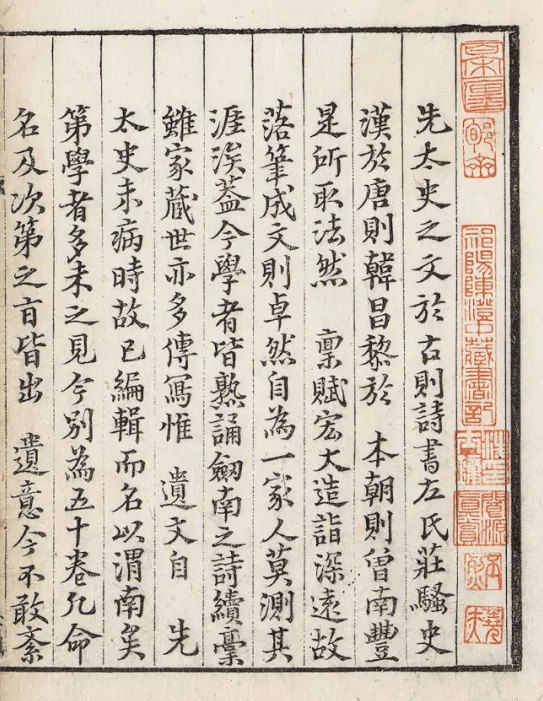 祁陽陳澄中藏書記
閬源真賞
先太史之文於古則詩書左氏莊騷史
漢於唐則韓昌黎於 本朝則曾南豐
是所取法然 稟賦宏大造詣深遠故
落筆成文則卓然自為一家人莫測其
涯涘葢今學者皆熟誦劒南之詩續稾
雖家藏世亦多傳寫惟 遺文自 先
太史未病時故已編輯而名以渭南矣
第學者多未之見今別為五十卷凡命
名及次第之旨皆出 遺意今不敢紊